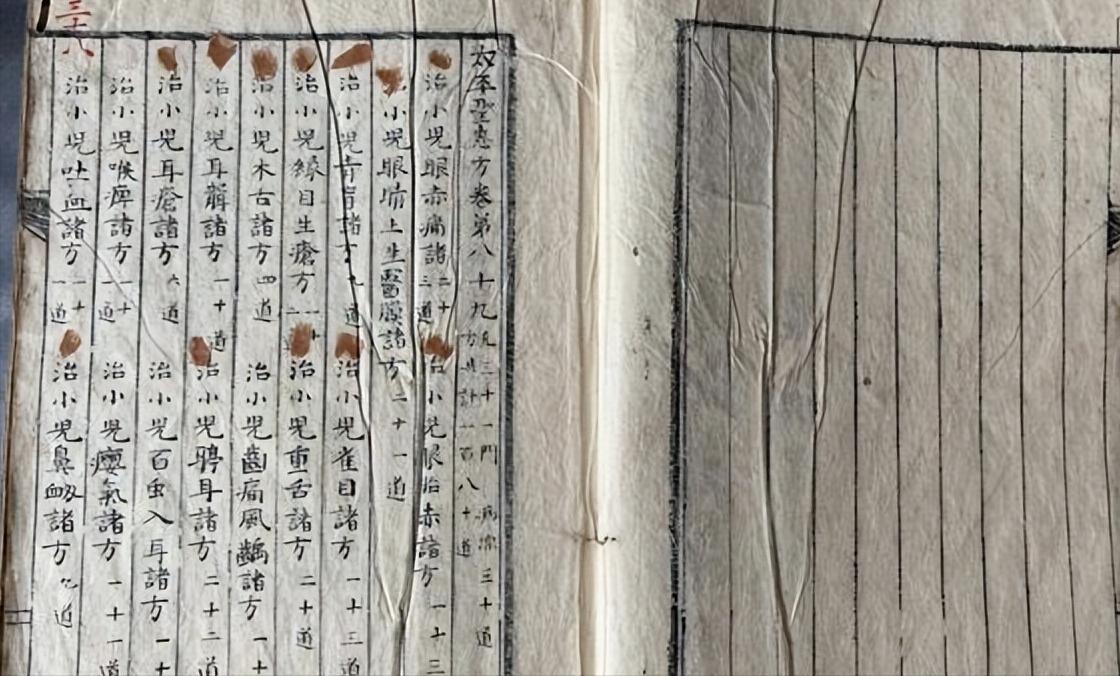 太平聖惠方卷第八十九 凡三十一門 病源三十道 方共計一百八十道
治小兒眼赤痛諸 二十三道 治小兒眼胎赤諸方 一十三
小兒眼𥉂上生翳膜諸方 二十一道
治小兒青盲諸 九道 治小兒雀目諸方 一十三道
治小兒緣目生瘡方 治小兒重舌諸方 二十道
治小兒木舌諸方 四道 治小兒齒痛風齲諸方 一十
治小兒耳聾諸方 一十道 治小兒聤耳諸方 二十二道
治小兒耳瘡諸方 六道 治小兒百虫入耳諸方 一十
治小兒喉痺諸方 一十一道 治小兒癭氣諸方 一十一道
治小兒吐血諸方 一十一道 治小兒鼻衂諸方 九道
三十八